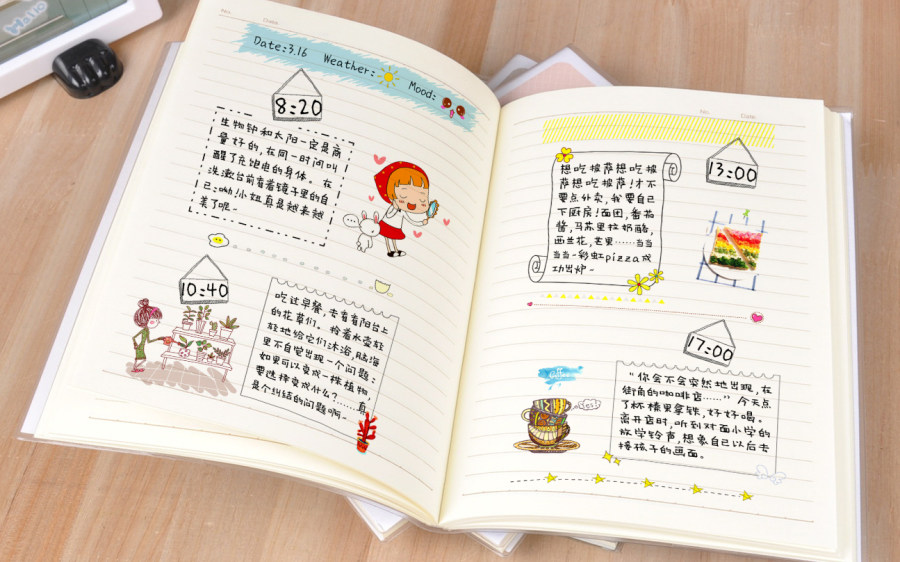 Date:3.16 Weather: Mood:
8:20
生物钟和太阳一定是商
量好的,在同一时间叫
醒了充饱电的身体。在
洗漱台前看着镜子里的自
己:呦,小姐真是越来越
美了呢~
10:40
吃过早餐,去看看阳台上
的花草们。拎着水壶轻
轻地给它们沐浴,脑海
里不自觉出现一个问题:
如果可以变成一株植物,
要选择变成什么?……真
是个纠结的问题啊~
No. Date
13:00
想吃披萨想吃披
萨想吃披萨!才不
要点外卖,我要自己
下厨房!面团,番茄
酱,马苏里拉奶酪,
西兰花,芒果……当当
当当~彩虹pizza成
功出炉~
17:00
"你会不会突然地出现,在
街角的咖啡店……"今天点
了杯榛果拿铁,好好喝。
离开店时,听到对面小学的
放学铃声,想象自己以后去
接孩子的画面。